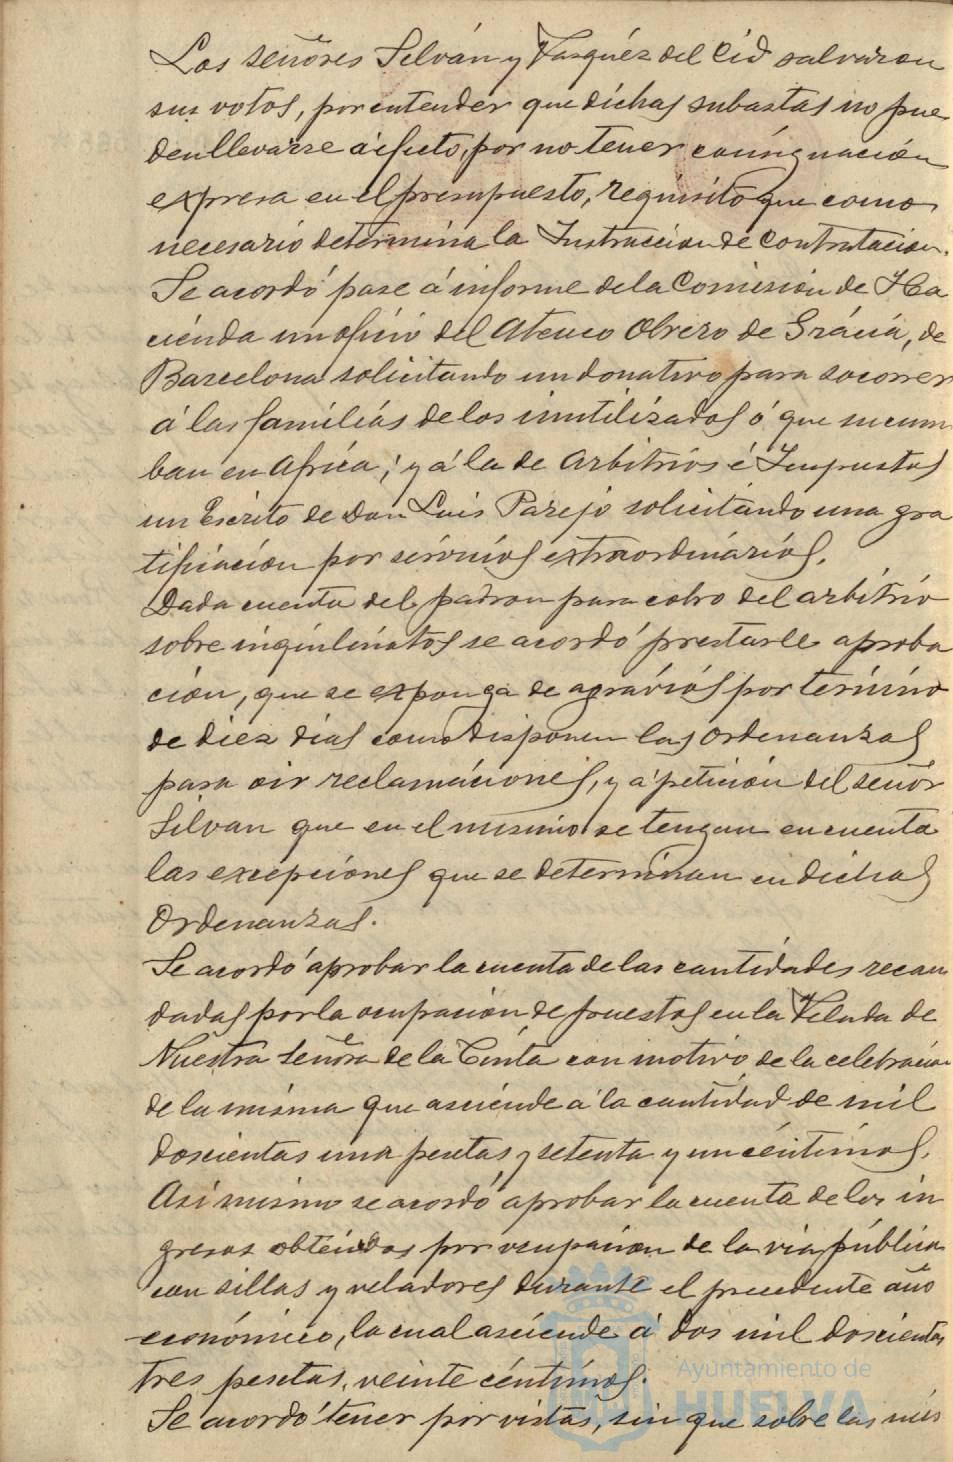 Los señores Silván y Vasquéz del Cid salvaron
sus votos, por entender que dichas subastas no pue
den llevarse á efecto, por no tener consignación
expresa en el presupuesto, requisito que como
necesario determina la Instrucción de Contratación.
Se acordó pase á informe de la Comisión de Ha
cienda un oficio del Ateneo Obrero de Grácia, de
Barcelona solicitando un donativo para socorrer
á las familias de los inutilizados ó que sucum
ban en Africa; y á la de Arbitrios é Impuestos
un Escrito de Don Luis Parejo solicitando una gra
tificación por servicios extraordinarios.
Dada cuenta del padron para cobro del arbitrio
sobre inquilinatos se acordó prestarle aproba
ción, que se exponga de agravios por término
de diez dias como disponen las Ordenanzas
para oir reclamaciones, y á petición del señor
Silvan que en el mismo se tengan en cuenta
las excepciones que se determinan en dichas
Ordenanzas.
Se acordó aprobar la cuenta de las cantidades recau
dadas por la ocupación de puestos en la Velada de
Nuestra Señora de la Cinta con motivo de la celebración
de la misma que asciende á la cantidad de mil
doscientas una pesetas y setenta y un céntimos.
Asi mismo se acordó aprobar la cuenta de los in
gresos obtenidos por ocupación de la via pública
con sillas y veladores durante el precedente año
económico, la cual asciende á dos mil doscientas
tres pesetas, veinte céntimos.
Se acordó tener por vistas, sin que sobre las mis
Ayuntamiento de
HUELVA